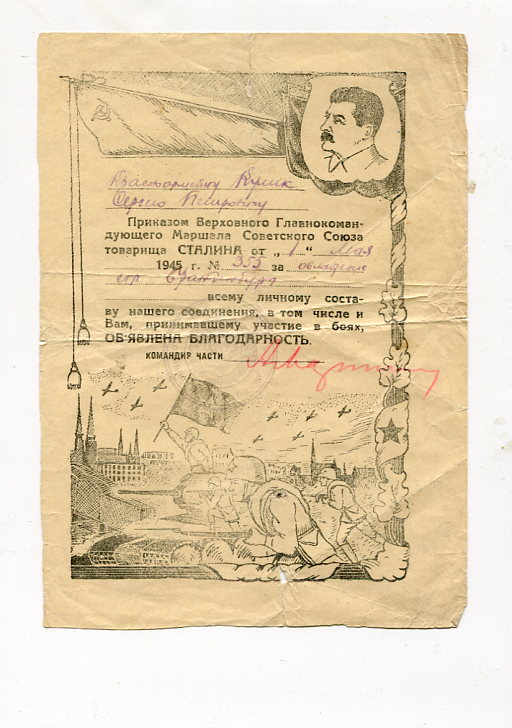 Красноармейцу
Сергею Петровичу
Приказом Верховного Главнокоман-
дующего Маршала Советского Союза
товарища СТАЛИНА от „1“ Мая
1945 г. № 355 за овладение
гор. Бранденбург
всему личному соста-
ву нашего соединения, в том числе и
Вам, принимавшему участие в боях,
ОБ'ЯВЛЕНА БЛАГОДАРНОСТЬ.
КОМАНДИР ЧАСТИ